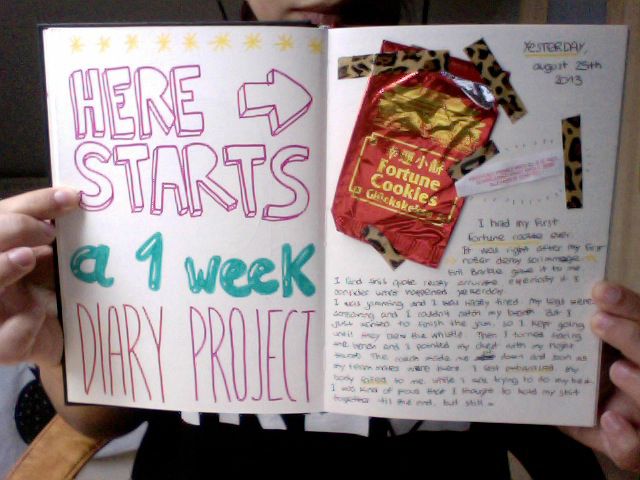 HERE
STARTS
a 1 week
DIARY PROJECT
YESTERDAY,
august 25th
2013
幸運小餅
Fortune
Cookies
Glückskekse
I had my first
fortune cookie ever.
It was right after my first
roller derby scrimmage.
Evil Barbie gave it to me
I find this quote really accurate especially if I
consider what happened yesterday.
I was jamming and I was really tired. My legs were
screaming and I couldn't catch my breath. But I
just wanted to finish the jam, so I kept going
until they blew the whistle. Then I turned facing
the bench and I pointed my chest with my right
hand. The coach made me down and soon as
my team mates were there. I felt my
body failed to me while I was trying to do my best.
I was kind of proud that I thought to hold my shit
together 'til the end, but still